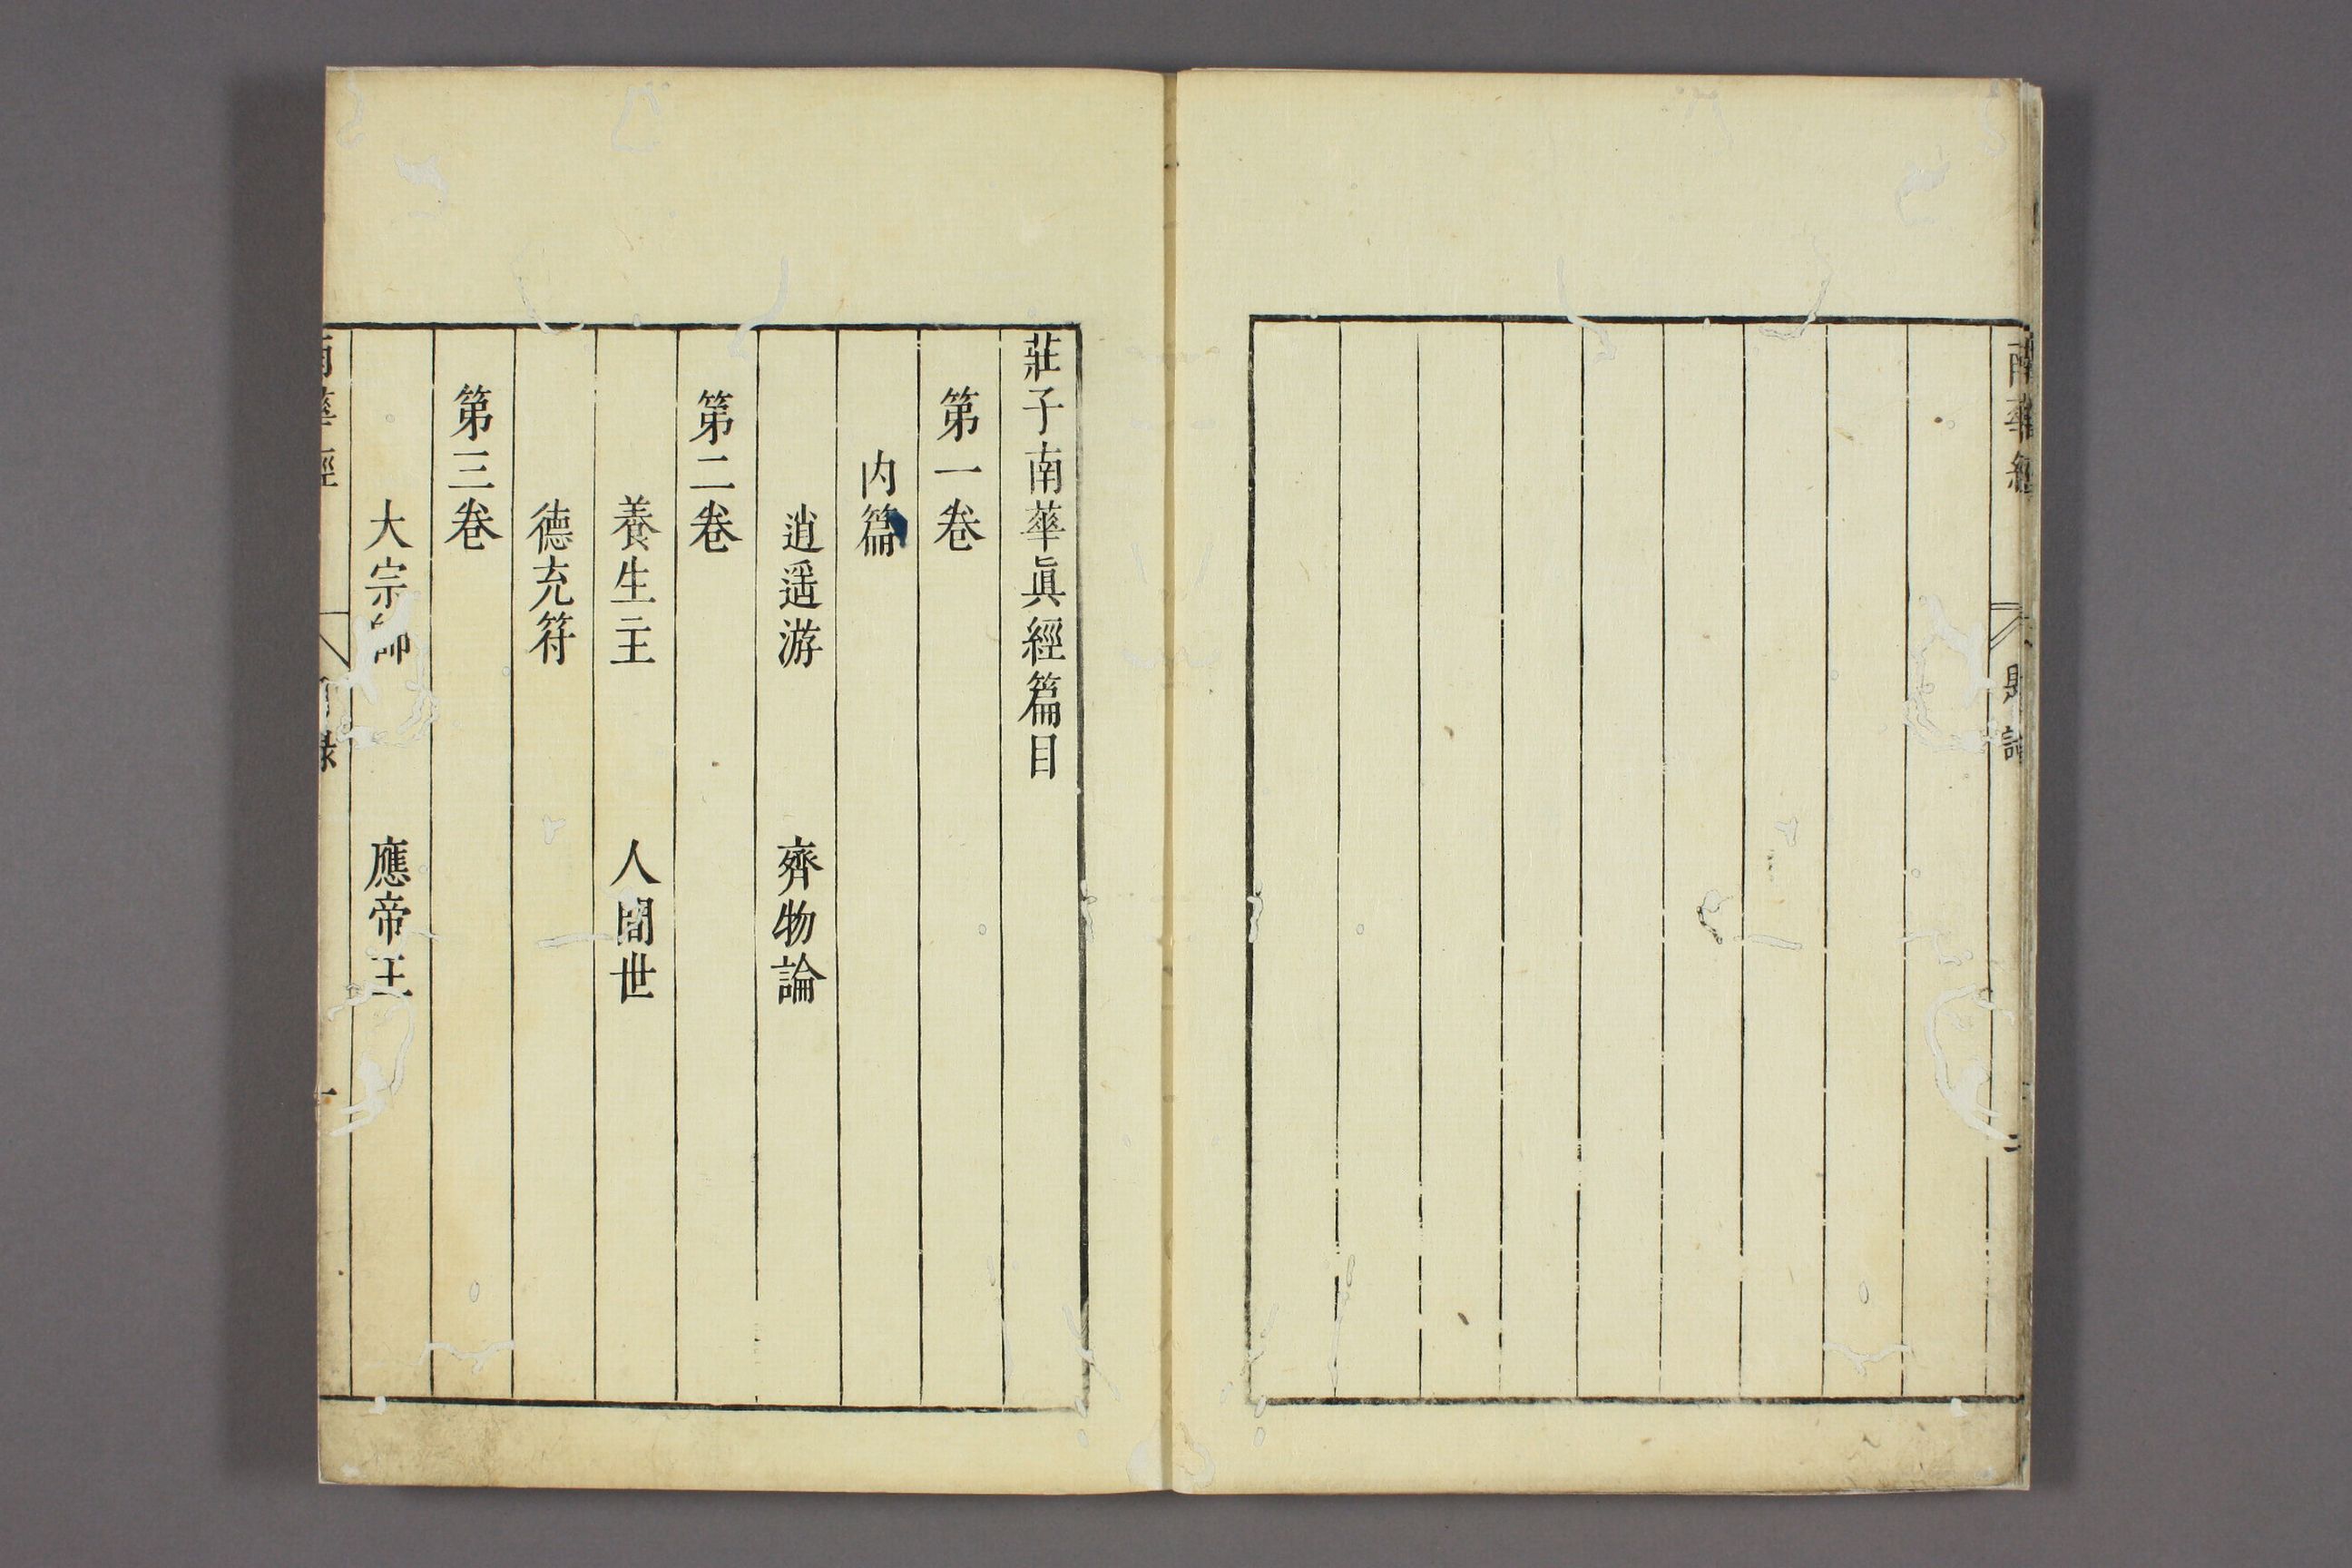 南華經
二
莊子南華眞經篇目
第一卷
内篇
逍遥游 齊物論
第二卷
養生主 人間世
德充符
第三卷
大宗師 應帝王
南華經
錄
一